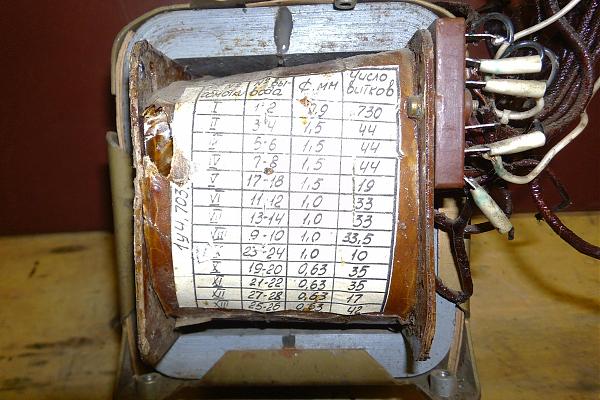 обмотка № вывода ф, мм Число витков
I 1-2 0,9 730
II 3-4 1,5 44
III 5-6 1,5 44
IV 7-8 1,5 44
V 17-18 1,5 19
VI 11-12 1,0 33
VII 13-14 1,0 33
VIII 9-10 1,0 33,5
IX 23-24 1,0 10
X 19-20 0,63 35
XI 21-22 0,63 35
XII 27-28 0,63 17
XIII 25-26 0,63 42